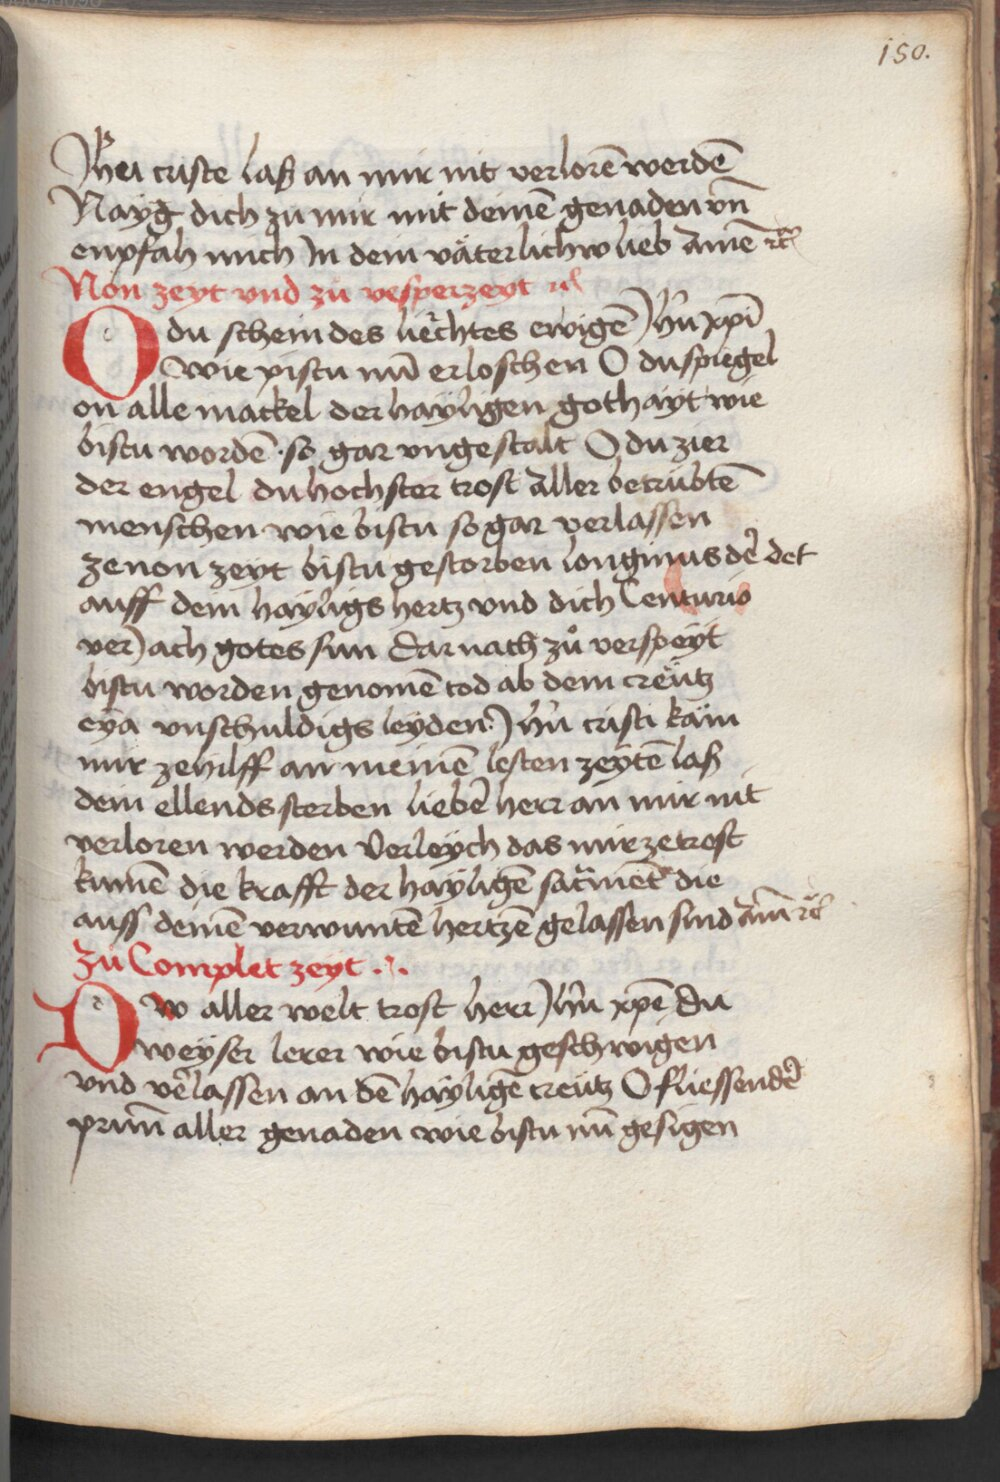 150.
Jhu criste laß an mir nit verlorē werdē
Nayg dich zu mir mit deinē genaden vn̄
enpfah mich in dem väterlichn lieb Amē rc
Non zeyt vnd zu vesperzeyt rc
O du schein des liechtes ewigē Jhū xpī
wie pistu nū erloschen O du spiegel
on alle mackel der hayligen gothayt wie
bistu wordē so gar vngestalt O du zier
der engel du hochster trost aller betrübtē
menschen wie bistu so gar verlassen
ze non zeyt bistu gestorben longinus dē det
auff dein hayligs hertz vnd dich Centurio
verJach gotes sun dar nach zů vesperzeyt
bistu worden genomē tod ab dem creütz
eya vnschuldigs leyden Jhū cristi käm
mir ze hilff an meinē lesten zeytē laß
dein ellends sterben lieber herr an mir nit
verloren werden verleych das mir ze trost
kumē die krafft der hayligē sacrmēt die
auss deinē verwuntē hertzē gelassen sind Amē rc
Zu Complet zeyt .:.
O w aller welt trost herr Jhū xpē du
weyser lerer wie bistu geschwigen
vnd vērlassen an dē hayligē creütz O fliessender
prūn aller genaden wie bistu nū gesigen